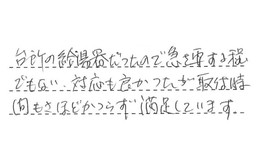 台所の給湯器だったので急を要する程
でもない。対応も良かったが取付時
間もさほどかからず満足しています。